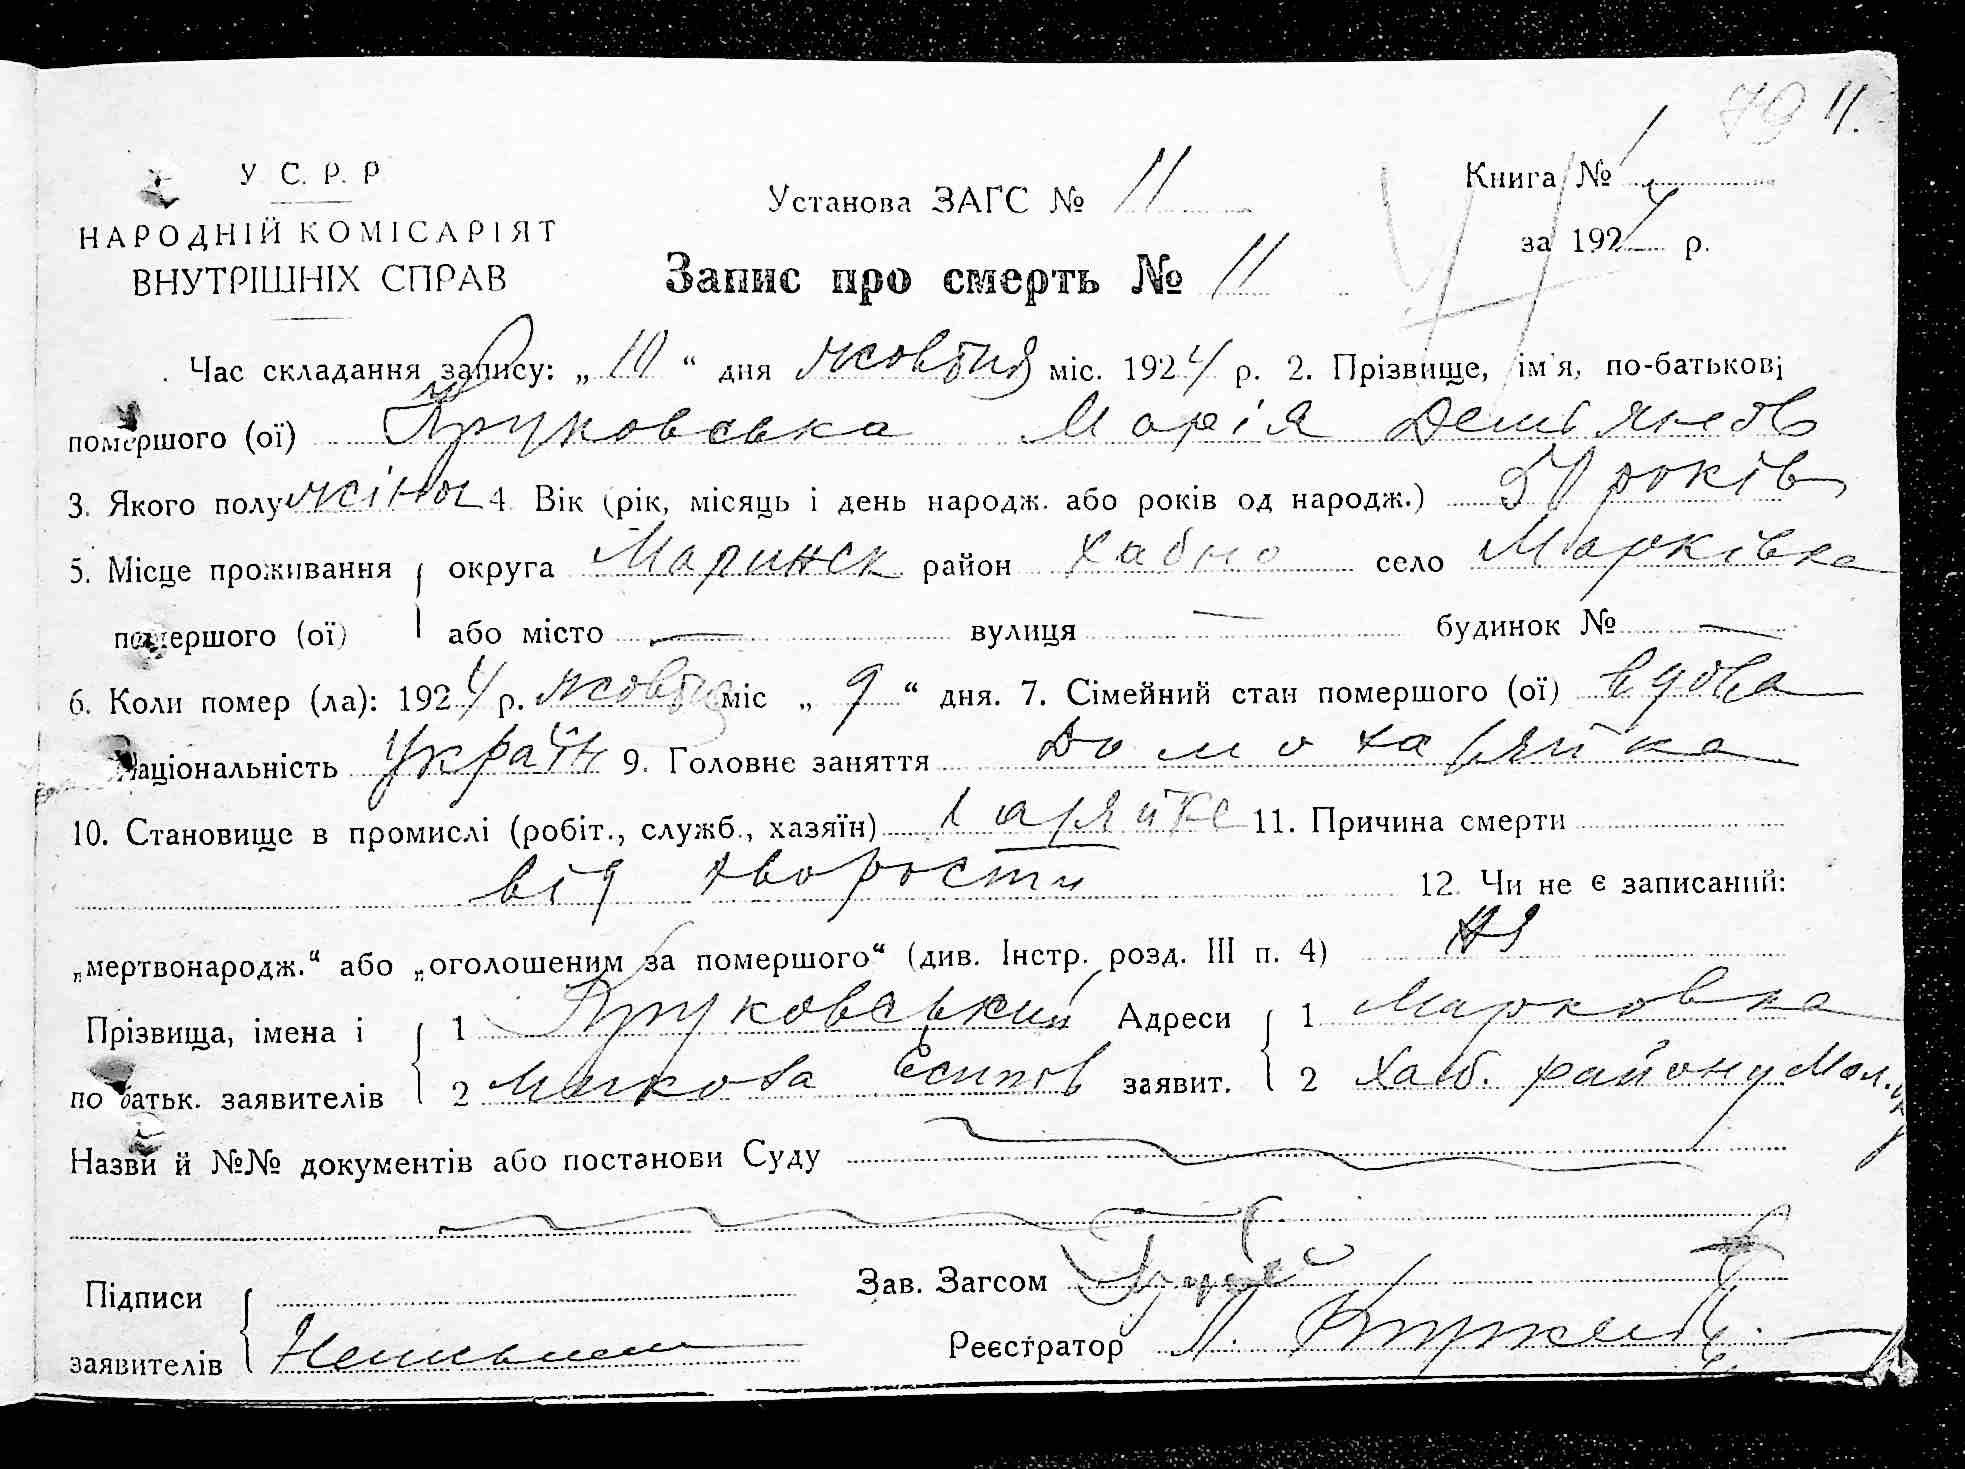 79 11.
У С. Р. Р
НАРОДНІЙ КОМІСАРІЯТ
ВНУТРІШНІХ СПРАВ
Установа ЗАГС № 11
Книга № 1
за 1924 р.
Запис про смерть № 11
Час складання запису: „ 10 “ дня жовтня міс. 1924 р. 2. Прізвище, ім'я, по-батькові
помершого (ої) Круковська Марія Демʼянов
3. Якого полу жіноч 4. Вік (рік, місяць і день народж. або років од народж.) 50 років
5. Місце проживання округа район Хабно село Марківка
помершого (ої) або місто — вулиця — будинок № —
6. Коли помер (ла): 1924 р. жовтня міс „ 9 “ дня. 7. Сімейний стан помершого (ої) вдова
Національність Україн 9. Головне заняття Домохазяйка
10. Становище в промислі (робіт., служб., хазяїн) хазяйка 11. Причина смерти
від хворости 12. Чи не є записаний:
„мертвонародж.“ або „оголошеним за помершого“ (див. Інстр. розд. III п. 4) ні
Прізвища, імена і 1 Круковський Адреси 1 Марковка
по батьк. заявителів 2 Микола Єсипов заявит. 2 Хаб. району Мал.
Назви й №№ документів або постанови Суду
Підписи
Зав. Загсом
заявителів Неписьмен
Реєстратор